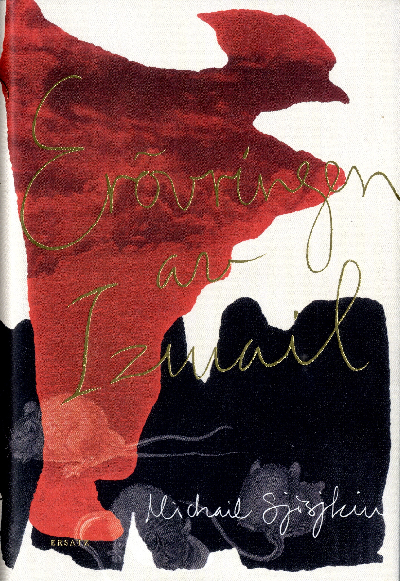 Erövringen
av
Izmail
Michail Sjisjkin
ERSATZ